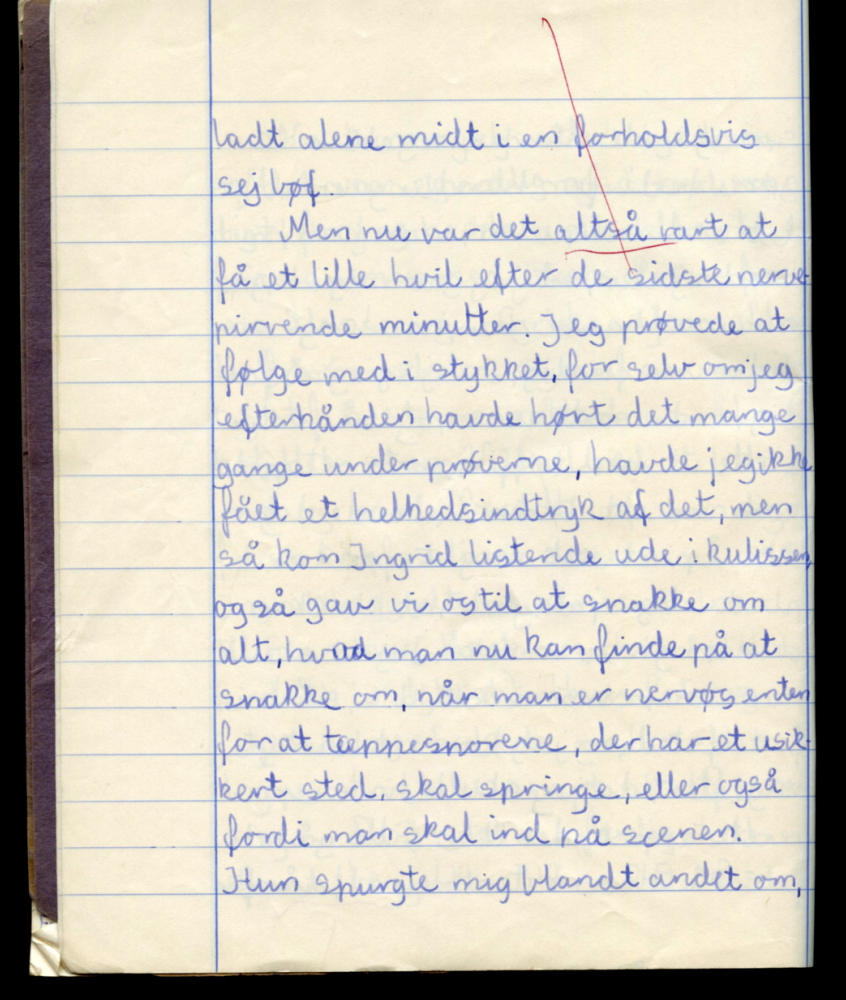 ladt alene midt i en forholdsvis
sej bøf.
Men nu var det altså rart at
få et lille hvil efter de sidste nerve-
pirrende minutter. Jeg prøvede at
følge med i stykket, for selv om jeg
efterhånden havde hørt det mange
gange under prøverne, havde jeg ikke
fået et helhedsindtryk af det, men
så kom Ingrid listende ude i kulissen,
og så gav vi os til at snakke om
alt, hvad man nu kan finde på at
snakke om, når man er nervøs enten
for at tæppesnorene, der har et usik-
kert sted, skal springe, eller også
fordi man skal ind på scenen.
Hun spurgte mig blandt andet om,